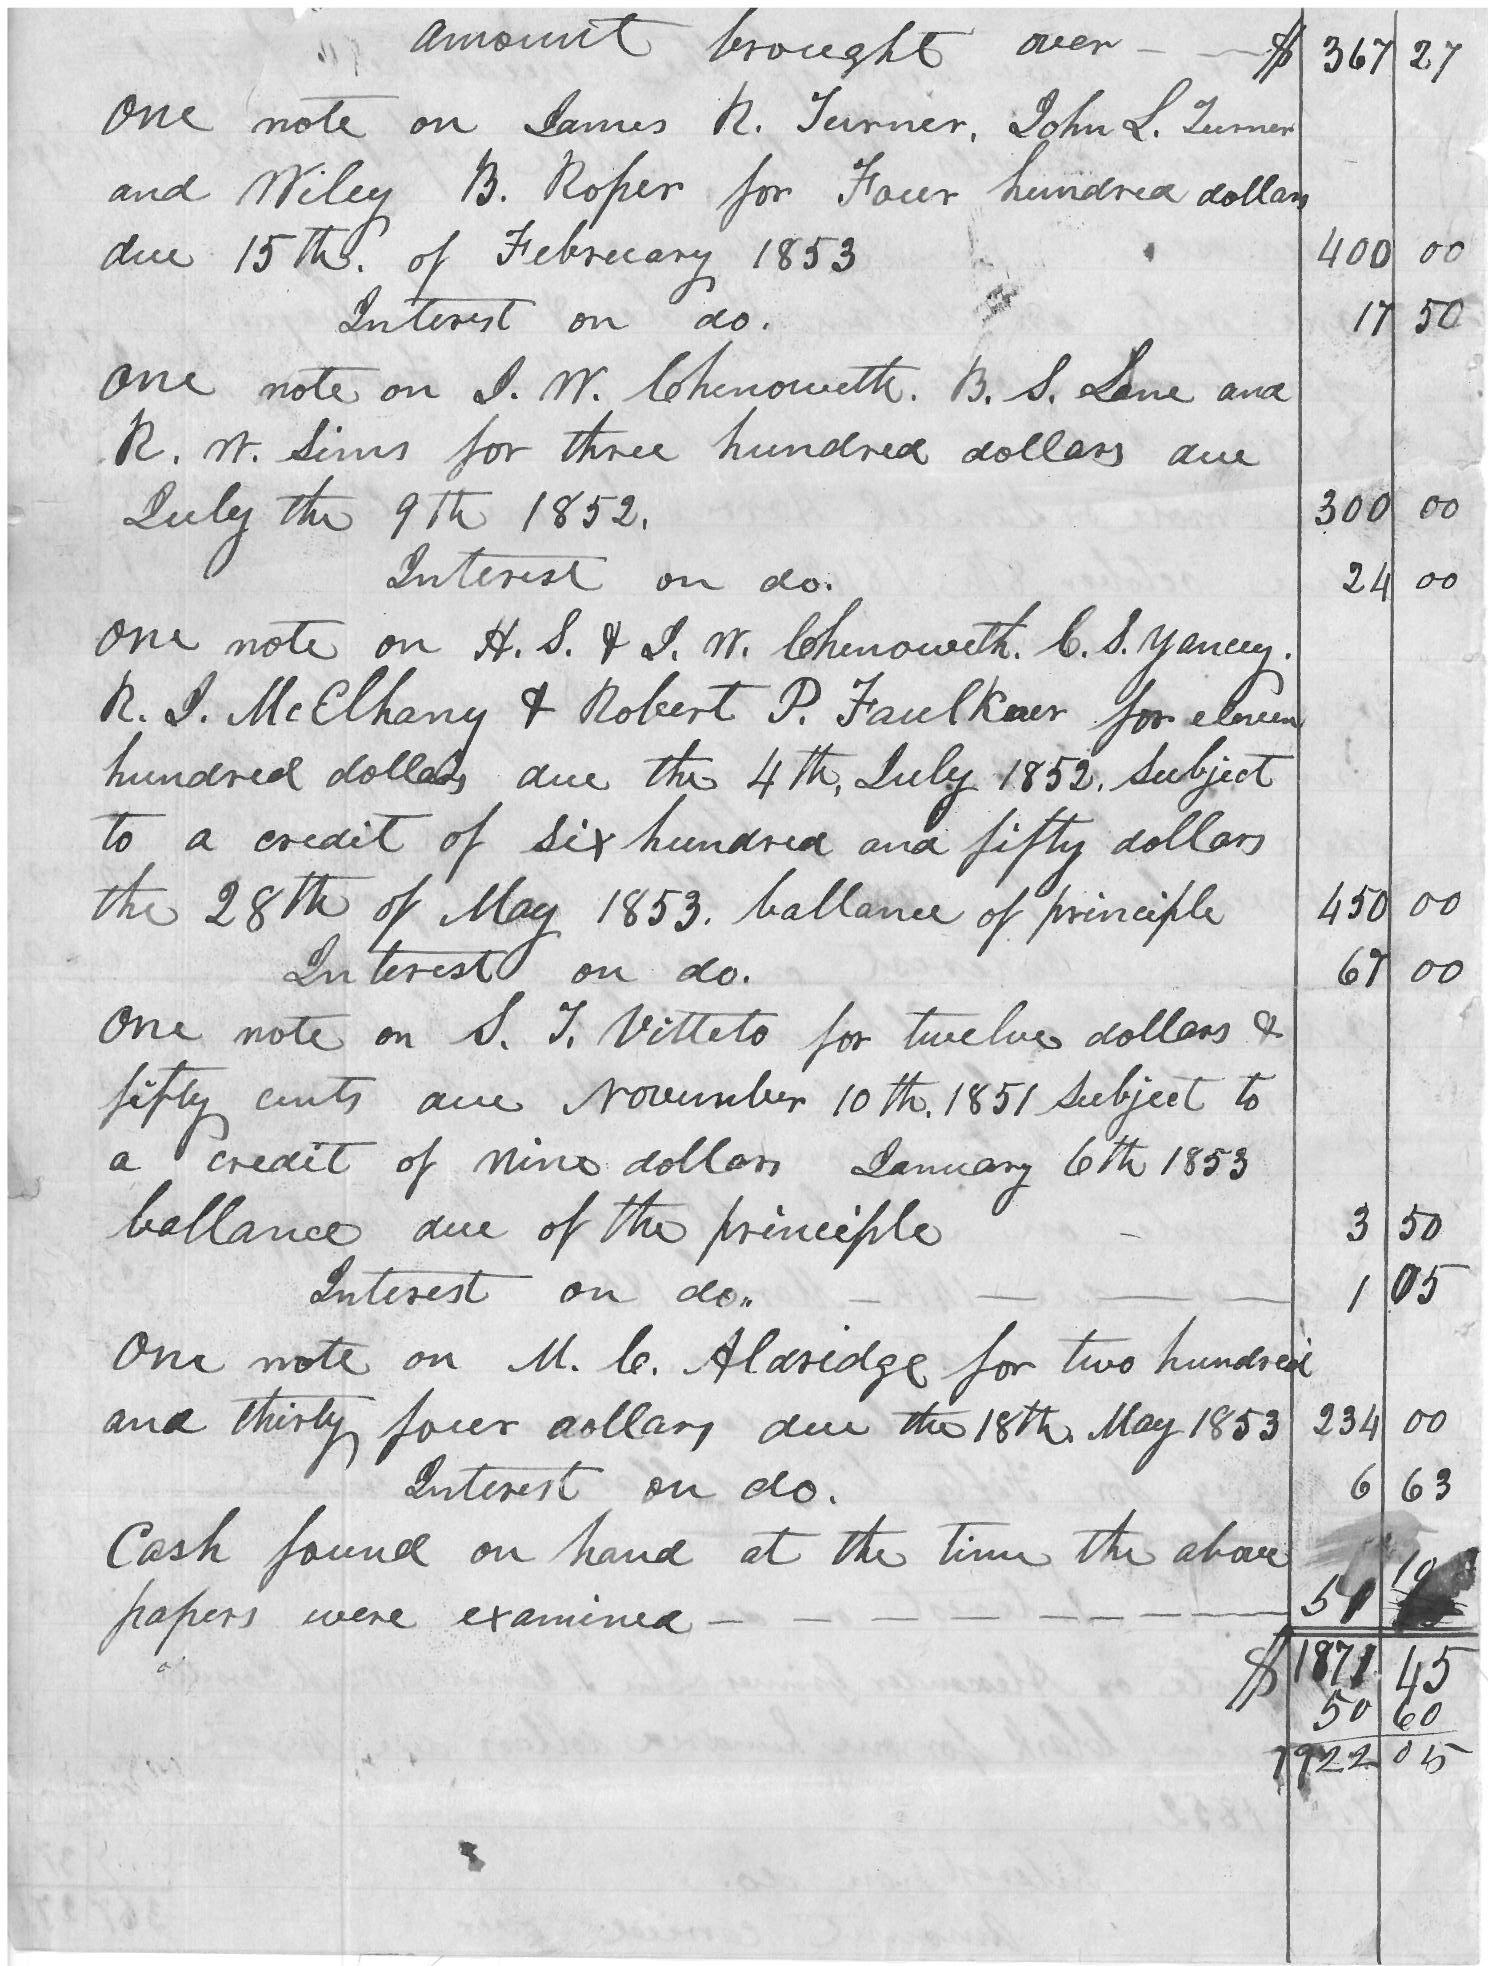 amount brought over - - $ 367 27
One note on James R. Turner, John L. Turner
and Wiley B. Roper for Four hundred dollars
due 15th. of February 1853 400 00
Interest on do. 17 50
One note on J. W. Chenoweth. B. S. Lane and
R. W. Sims for three hundred dollars due
July the 9th 1852. 300 00
Interest on do. 24 00
One note on H. S. & J. W. Chenoweth. C. S. Yancey.
R. J. McElhany & Robert P. Faulkner for eleven
hundred dollars due the 4th, July 1852. subject
to a credit of six hundred and fifty dollars
the 28th of May 1853. ballance of principle 450 00
Interest on do. 67 00
One note on S. T. Vitteto for twelve dollars &
fifty cents due November 10th. 1851 subject to
a credit of nine dollars January 6th 1853
ballance due of the principle - 3 50
Interest on do. - - - - 1 05
One note on M. C. Aldridge for two hundred
and thirty four dollars due the 18th. May 1853 234 00
Interest on do. 6 63
Cash found on hand at the time the above
papers were examined - - - - - - - - 51
$ 1871 45
50 60
1922 05